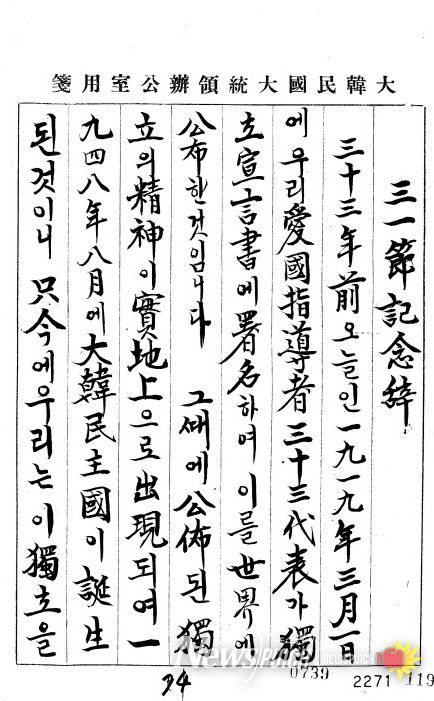 大韓民國大統領辦公室用箋
三一節記念辭
三十三年前오늘인一九一九年三月一日
에우리愛國指導者三十三代表가獨
立宣言書에署名하여이를世界에
公布한것임니다 그때에公佈된獨
立의精神이實地上으로出現되여一
九四八年八月에大韓民主國이誕生
된것이니 只今에우리는이獨立을
0739
2271 119